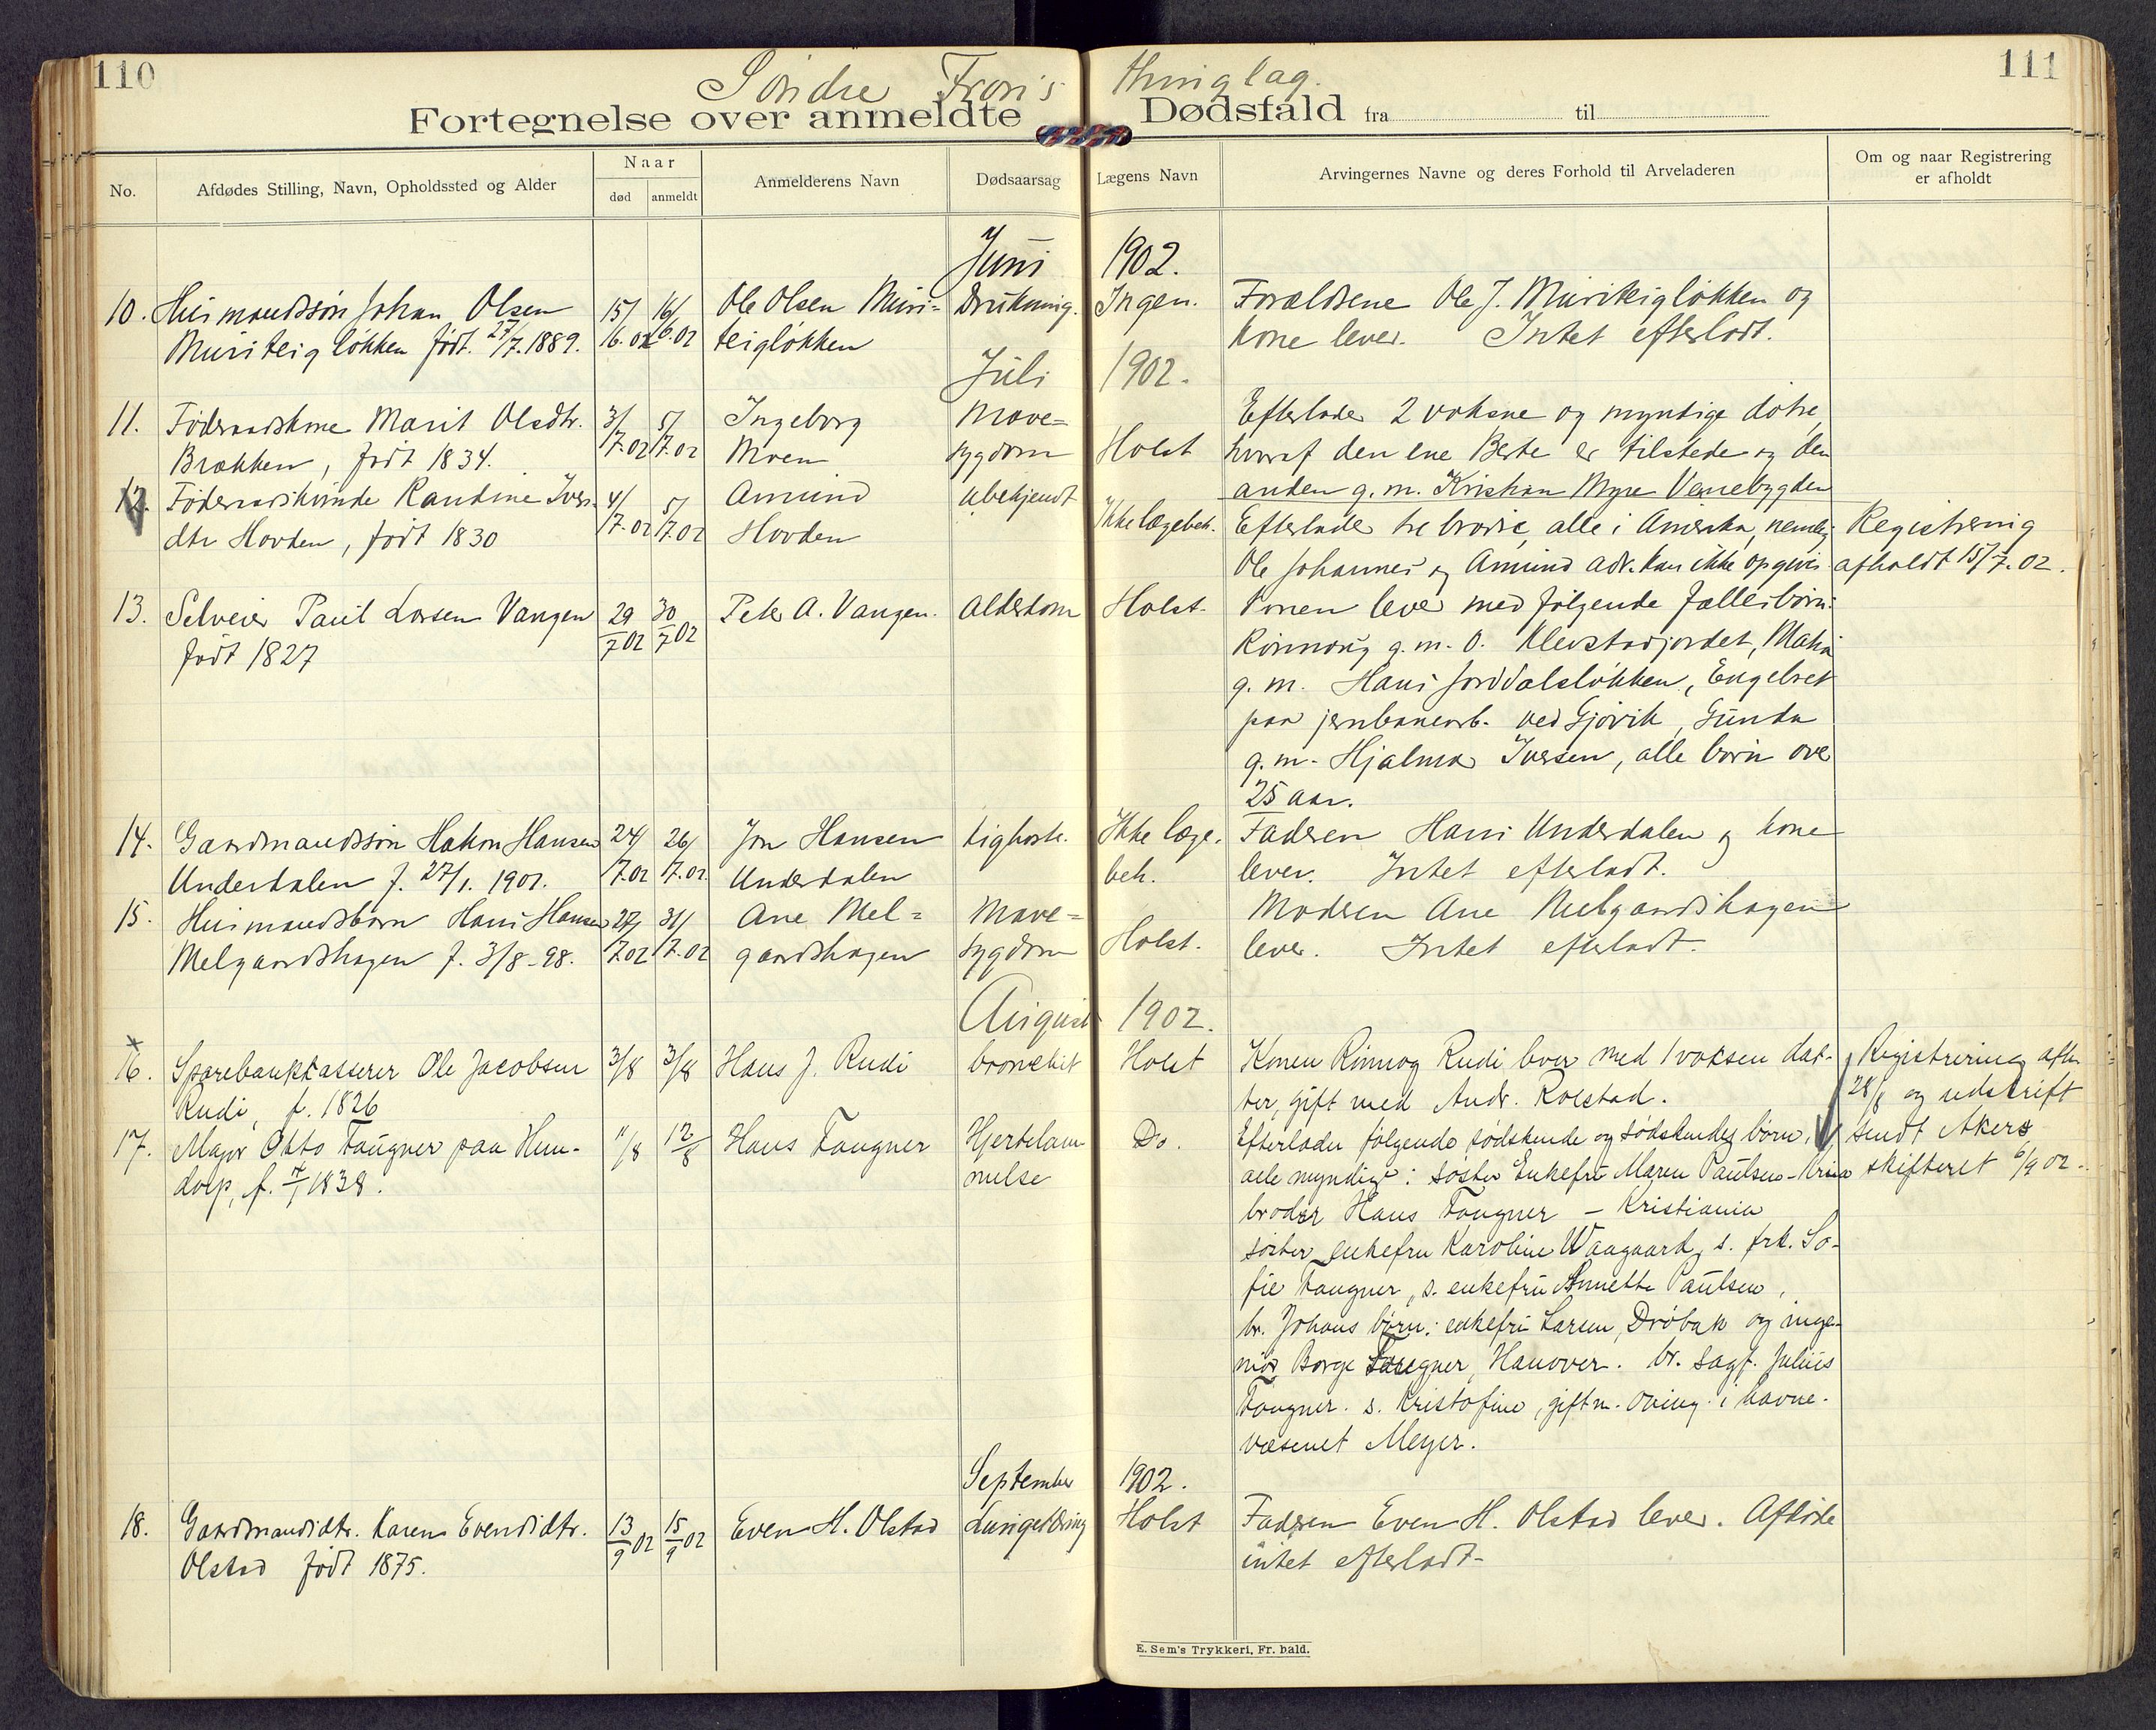 110
111
Søndre Frons thinglag.
Fortegnelse over anmeldte Dødsfald fra til
No.
Afdødes Stilling, Navn, Opholdssted og Alder
Naar
død
anmeldt
Anmelderens Navn
Dødsaarsag
Lægens Navn
Arvingernes Navne og deres Forhold til Arveladeren
Om og naar Registrering
er afholdt
Juni 1902.
10. Husmandssøn Johan Olsen 15/ 16/ Ole Olsen Muri- Drukning. Ingen. Forældrene Ole J. Muriteigløkken og
Muriteigløkken født. 27/7. 1889. 6.02 6.02 teigløkken kone lever. Intet efterladt.
Juli 1902.
11. Føderaadskone Marit Olsdtr. 3/ 5/ Ingeborg Mave- Efterlader 2 voksne og myndige døtre,
Brækken, født 1834. 7.02 7.02 Moen sygdom Holst hvoraf den ene Berte er tilstede og den
anden g. m. Kristian Myre Venebygden
12. Føderaadskvinde Randine Ivers- 4/ 5/ Amund ubekjendt Ikke lægebeh. Efterlader tre brødre, alle i Amerika, nemlig Registrering
dtr Hovden, født 1830 7.02 7.02 Hovden Ole Johannes og Amund adr. kan ikke opgives afholdt 15/7.02.
13. Selveier Paul Larsen Vangen 29 30 Peter A. Vangen. Alderdom Holst. Konen lever med følgende fællesbørn:
født 1827 7 02 7 02 Rønnaug g. m. O. Klevstadjordet, Mathea
g. m. Hans Jorddalsløkken, Engebret
paa jernbanearb. ved Gjøvik, Gunda
g. m. Hjalmar Iversen, alle børn over
25 aar.
14. Gaardmandssøn Hakon Hansen 24/ 26/ Jon Hansen kighoste. Ikke læge- Faderen Hans Underdalen og kone
Underdalen f. 27/1. 1901. 7.02 7.02 Underdalen beh. lever. Intet efterladt.
15. Husmandsbarn Hans Hansen 27/ 31/ Ane Mel- Mave- Moderen Ane Melgaardshagen
Melgaardshagen f. 3/8-98. 7.02 7.02 gaardshagen sygdom Holst. lever. Intet efterladt.
August 1902.
16. Sparebankkasserer Ole Jacobsen 3/8 3/8 Hans J. Rudi bronchit Holst Konen Rønnog Rudi lever med 1 voksen dat- Registrering afh.
Rudi, f. 1826 ter, gift med Andr. Kolstad. 28/8 og udskrift
17. Major Otto Faugner paa Hun- 11/8 12/8 Hans Faugner Hjertelam- Do. Efterlader følgende sødskende og sødskendes børn, sendt Akers
dorp, f. 1838. melse alle myndige: søster Enkefru Maren Paulsen - Kria skifteret 6/9 02.
broder Hans Faugner - Kristiania
søster enkefru Karoline Waagaard, s. frk. So-
fie Faugner, s. enkefru Annette Paulsen,
br. Johans børn: enkefru Larsen, Drøbak og inge-
niør Borge Faugner, Hanover. br. sagf. Julius
Faugner. s. Kristofine, gift m. oving. i havne-
væsenet Meyer.
September 1902.
18. Gaardmandsdtr. Karen Evensdtr. 13 15 Even H. Olstad Lungetæring Holst Faderen Even H. Olstad lever. Afdøde
Olstad født 1875. 9 02 9 02 intet efterladt-
E. Sem's Trykkeri, Fr. hald.